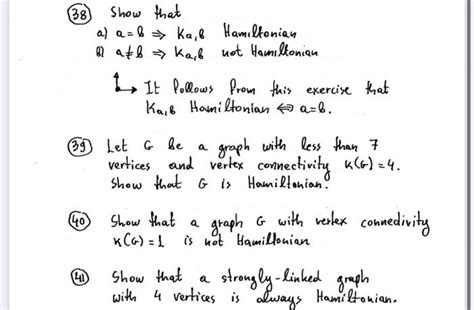 (38) Show that
a) a = b ⇒ Ka,b Hamiltonian
b) a ≠ b ⇒ Ka,b not Hamiltonian
↳ It follows from this exercise that
Ka,b Hamiltonian ⇔ a=b.
(39) Let G be a graph with less than 7
vertices and vertex connectivity K(G)=4.
Show that G is Hamiltonian.
(40) Show that a graph G with vertex connedivity
K(G)=1 is not Hamiltonian
(41) Show that a strongly-linked graph
with 4 vertices is always Hamiltonian.